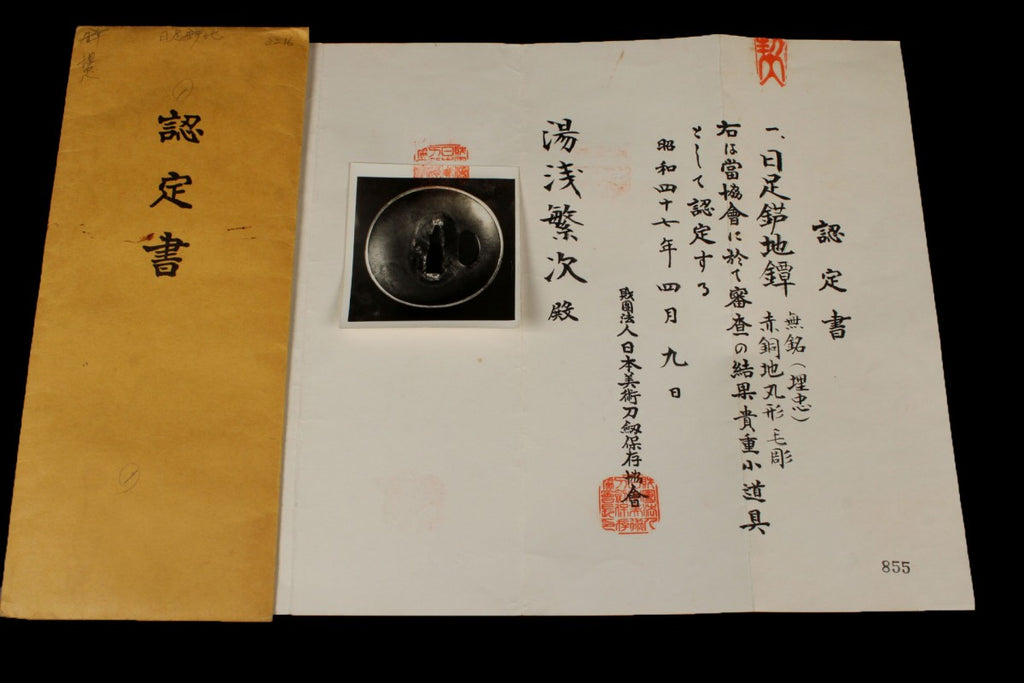 認定書
認定書
一、日足鑢地鐔
無銘(埋忠)
赤銅地丸形毛彫
右は當協會に於て審査の結果貴重小道具
として認定する
昭和四十七年四月九日
財團法人日本美術刀剣保存協會
湯浅繁次殿
855